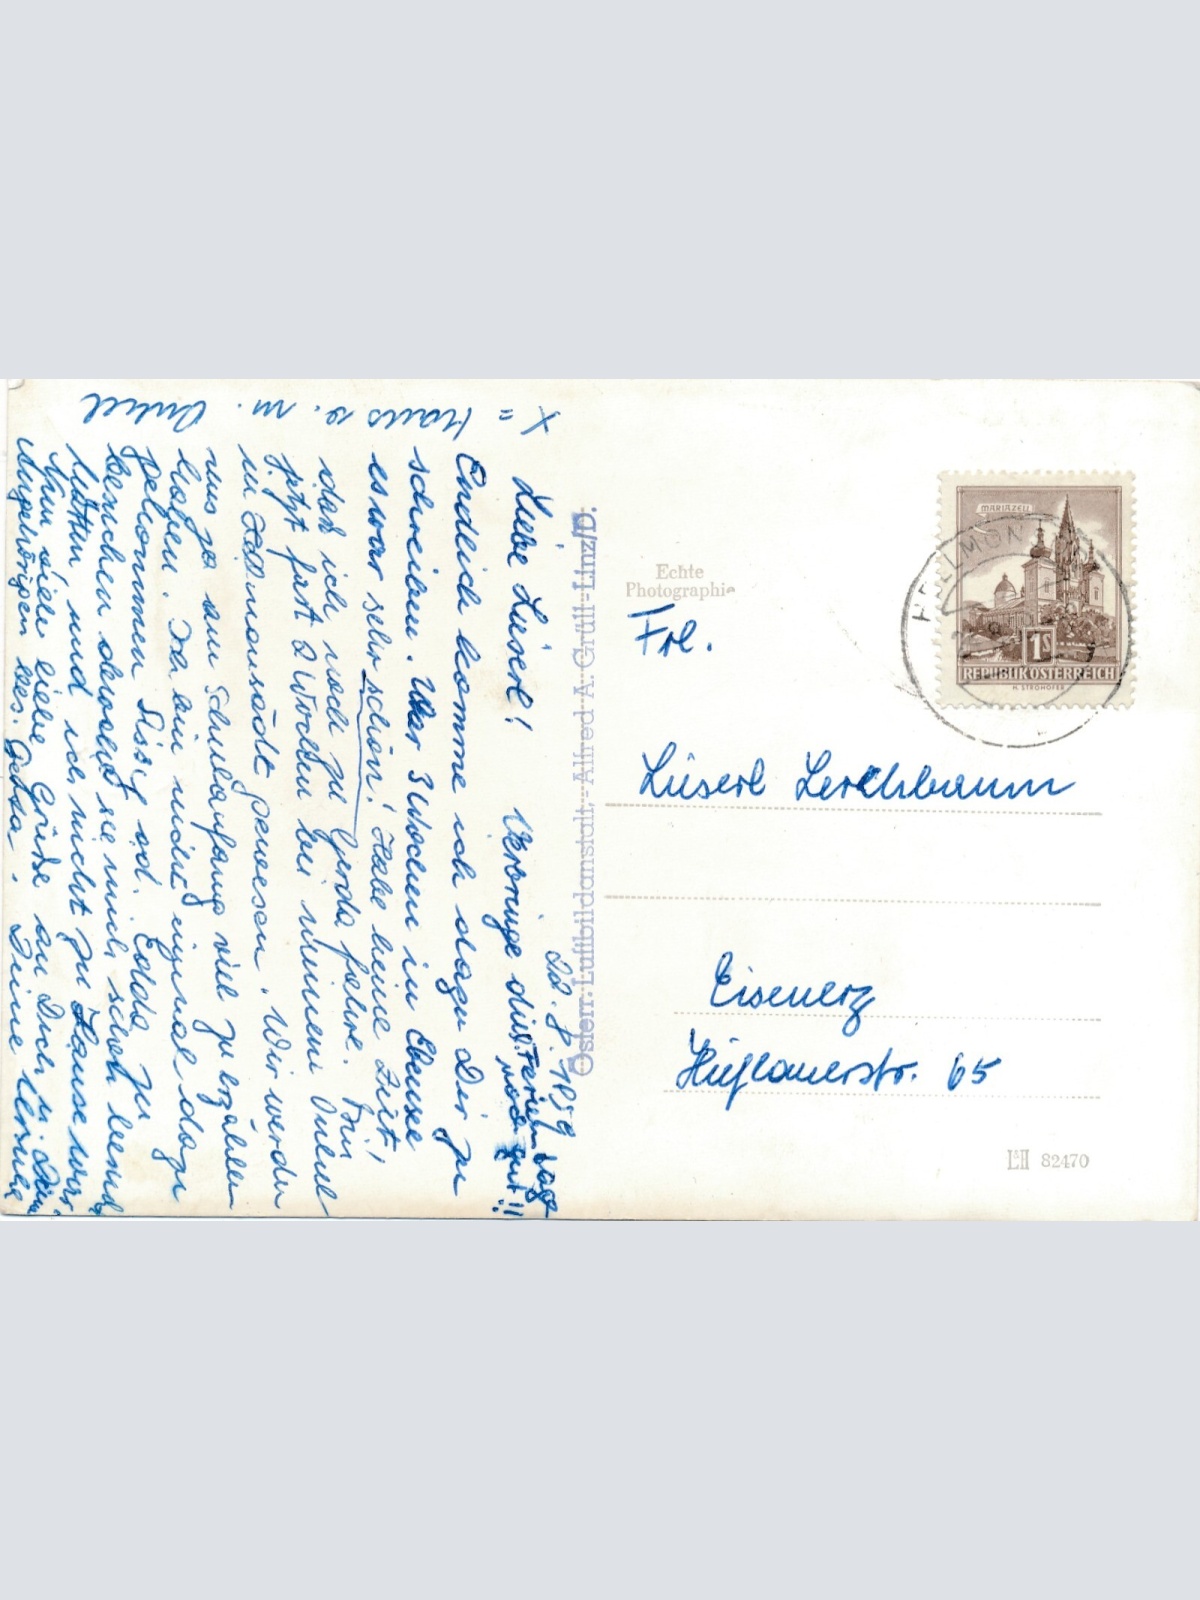 X = Haus v. m. Onkel
22. 8. 1959
Liebe Luserl! Verbringe die Ferientage
noch gut!!
Endlich komme ich dazu Dir zu
schreiben. War 3 Wochen in Ebensee
es war sehr schön! Habe keine Zeit,
daß ich noch zu Gerda fahre. Bin
jetzt fast 2 Wochen bei meinem Onkel
in gewesen. Wir werden
uns ja am Schulanfang viel zu erzählen
haben. Ich bin nicht einmal dazu
gekommen Sissy od. Edda zu
besuchen obwohl sie mich schon
hätten und ich nicht zu Hause war.
Nun viele liebe Grüße an Dich u. Deine
Angehörigen bes. Gerda. Deine Ursula
Österr. Luftbildanstalt,-Alfred A. Grüll-Linz/D.
Echte
Photographie
MARIAZELL
1S
REPUBLIK ÖSTERREICH
H. STROHOFER
Frl.
Luserl Lerchbaum
Eisenerz
Hieflauerstr. 65
82470